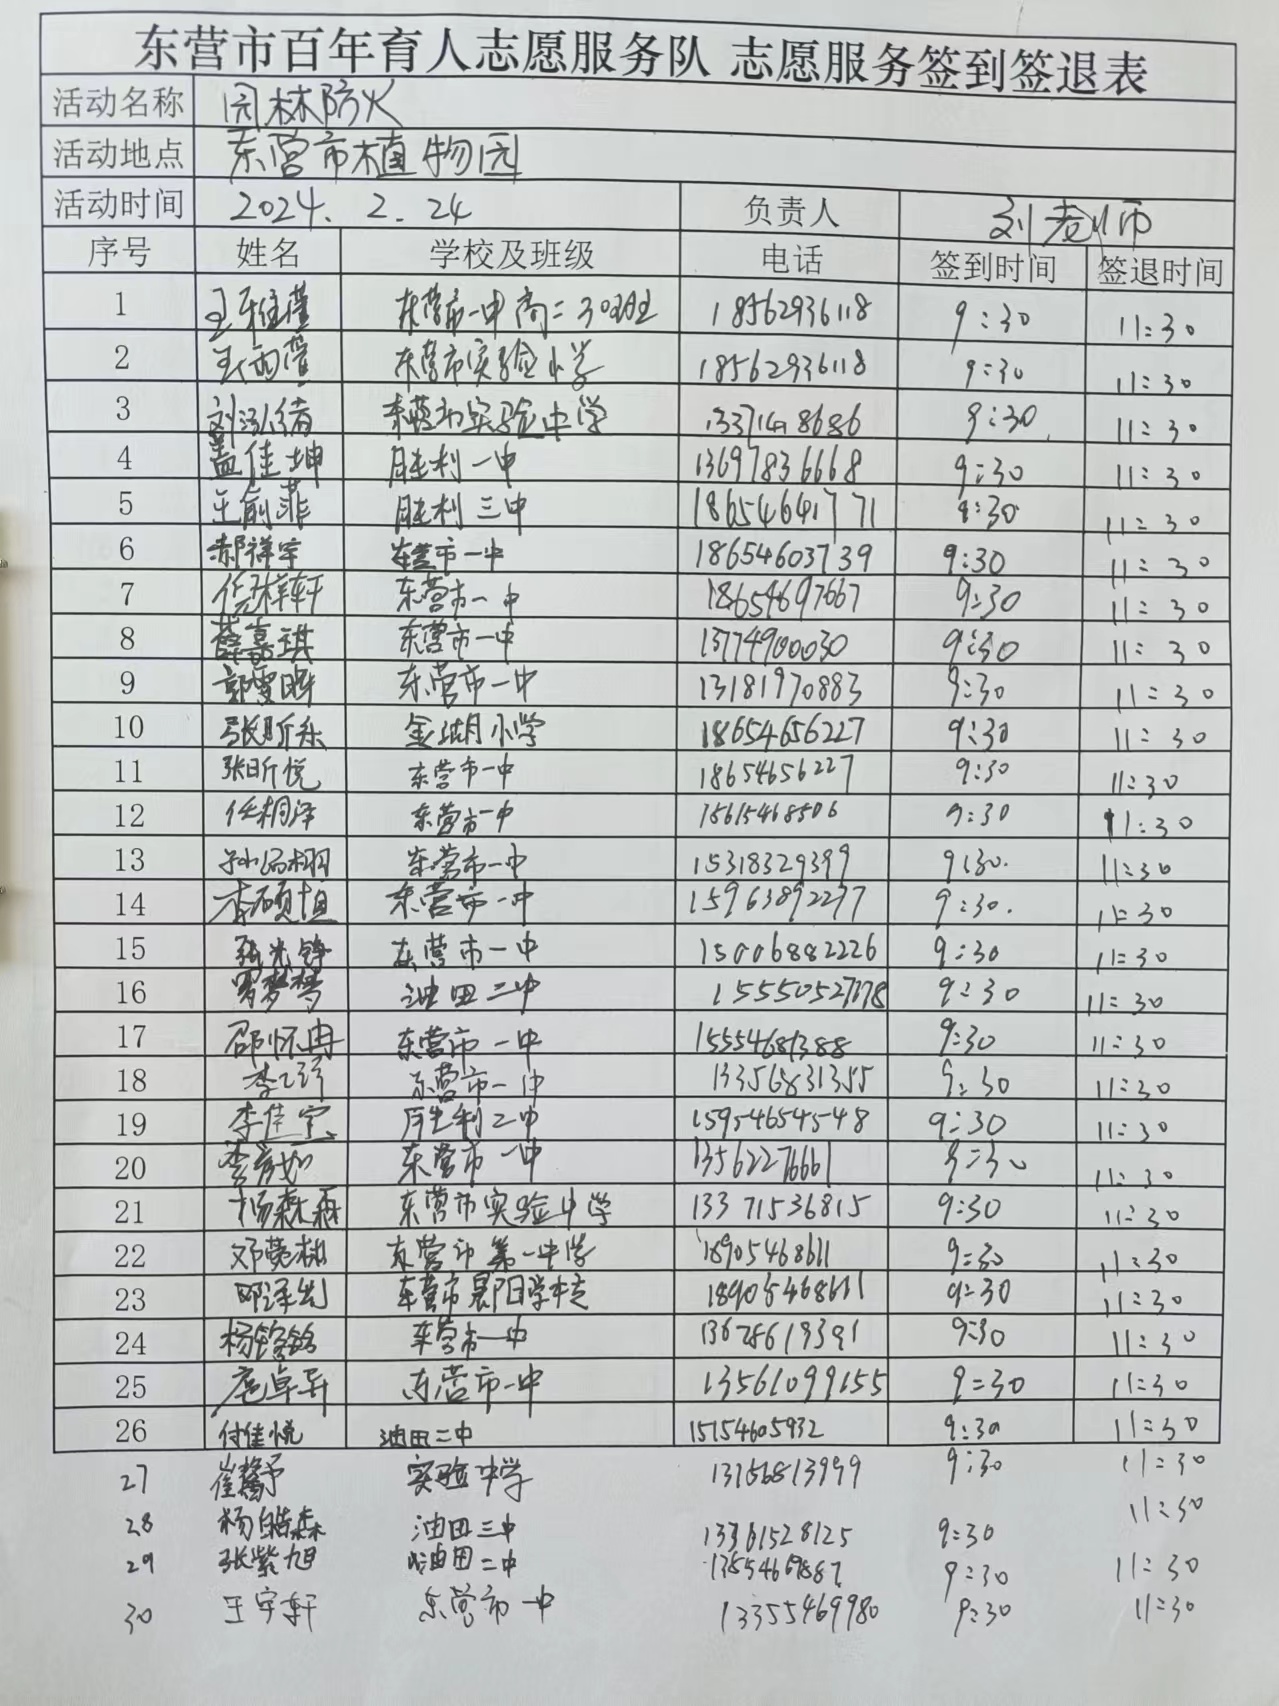 东营市百年育人志愿服务队 志愿服务签到签退表
活动名称 园林防火
活动地点 东营市植物园
活动时间 2024.2.24 负责人 刘老师
序号 姓名 学校及班级 电话 签到时间 签退时间
1 王雅萱 东营市一中高二30班 18562936118 9:30 11:30
2 王雨萱 东营市实验小学 18562936118 9:30 11:30
3 东营市实验中学 9:30 11:30
4 盖佳坤 胜利一中 13697836668 9:30 11:30
5 王俞菲 胜利三中 18654641771 9:30 11:30
6 郝祥宇 东营市一中 18654603739 9:30 11:30
7 东营市一中 18654697667 9:30 11:30
8 薛嘉琪 东营市一中 13774900030 9:30 11:30
9 东营市一中 13181970883 9:30 11:30
10 张昕乐 金湖小学 18654656227 9:30 11:30
11 张昕悦 东营市一中 18654656227 9:30 11:30
12 任桐泽 东营市一中 15615468506 9:30 11:30
13 东营市一中 15318329399 9:30. 11:30
14 李硕恒 东营市一中 15963892297 9:30. 11:30
15 东营市一中 15006882226 9:30 11:30
16 罗梦梦 油田二中 9:30 11:30
17 邵怀冉 东营市一中 15554681388 9:30 11:30
18 东营市一中 13356831355 9:30 11:30
19 李佳宝 胜利二中 15954654548 9:30 11:30
20 东营市一中 13562276661 9:30 11:30
21 杨森森 东营市实验中学 13371536815 9:30 11:30
22 东营市第一中学 18905468611 9:30 11:30
23 东营市晨阳学校 18905468611 9:30 11:30
24 东营市一中 13678619391 9:30 11:30
25 庞卓异 东营市一中 13561099155 9=30 11:30
26 付佳悦 油田二中 15154605932 9:30 11:30
27 崔馨予 实验中学 13156813999 9:30 11:30
28 杨皓森 油田三中 13361528125 9:30 11:30
29 张紫旭 油田二中 9:30 11:30
30 王宇轩 东营市一中 13355469980 9:30 11:30